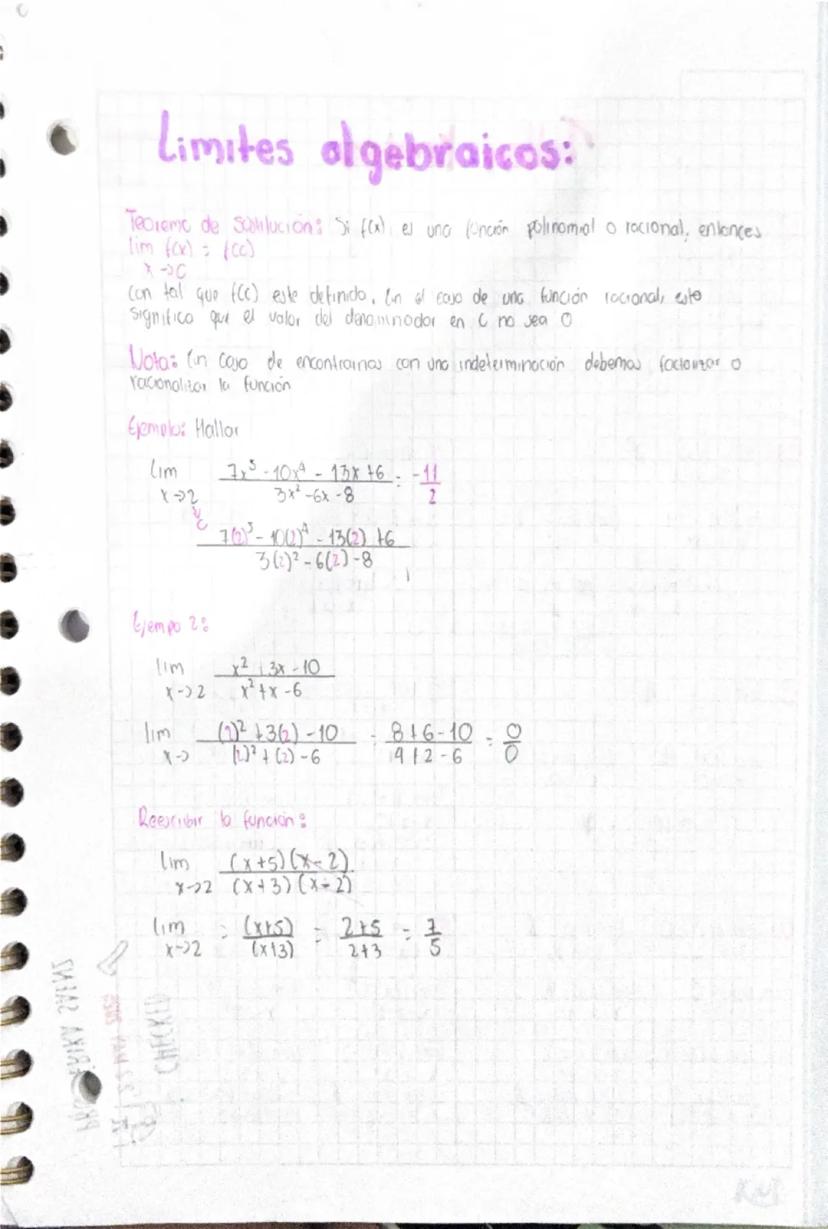 Limites algebraicos:
Teorema de Sustitución: Si f(x) es una función polinomial o racional, entonces
lim f(x) = f(c)
x→c
Con tal que f(c) este definido. En el caso de una función racional, esto
significa que el valor del denominador en c no sea 0
Nota: En caso de encontrarnos con una indeterminación debemos factorizar o
racionalizar la función
Ejemplo: Hallar
lim 7x⁵ - 10x⁴ - 13x + 6 / 3x² - 6x - 8 = - 11/2
x→2
c
7(2)⁵ - 10(2)⁴ - 13(2) + 6 / 3(2)² - 6(2) - 8
Ejempo 2:
lim x² + 3x - 10 / x² + x - 6
x→2
lim (2)² + 3(2) - 10 / (2)² + (2) - 6 = 8+6-10 / 4+2-6 = 0/0
x→
Reescribir la función:
lim (x+5)(x-2) / (x+3)(x-2)
x→2
lim = (x+5) / (x+3) = 2+5 / 2+3 = 7/5
x→2
CHECKED